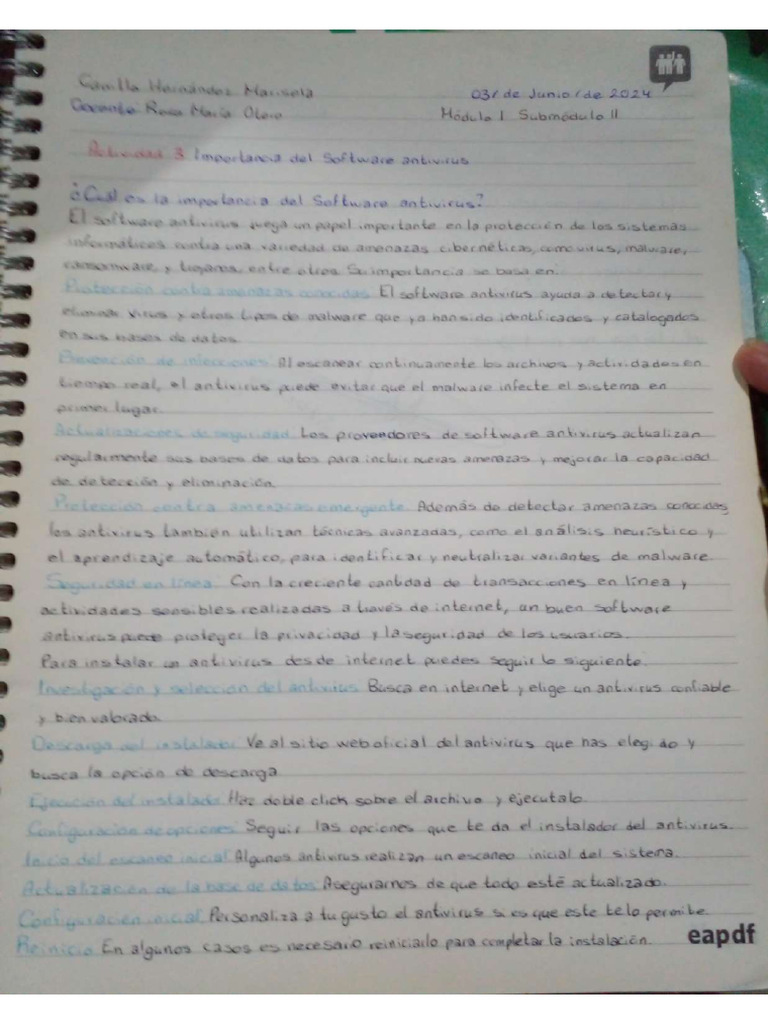 Camilla Hernández Marisela 03/de Junio/de 2024
Docente Rosa María Otero Módulo I Submódulo II
Actividad 3 Importancia del Software antivirus
¿Cuál es la importancia del Software antivirus?
El software antivirus juega un papel importante en la protección de los sistemas
informáticos contra una variedad de amenazas cibernéticas, como virus, malware,
ransomware, y troyanos, entre otros. Su importancia se basa en:
Protección contra amenazas conocidas El software antivirus ayuda a detectar y
eliminar virus y otros tipos de malware que ya han sido identificados y catalogados
en sus bases de datos.
Prevención de infecciones Al escanear continuamente los archivos y actividades en
tiempo real, el antivirus puede evitar que el malware infecte el sistema en
primer lugar.
Actualizaciones de seguridad Los proveedores de software antivirus actualizan
regularmente sus bases de datos para incluir nuevas amenazas y mejorar la capacidad
de detección y eliminación.
Protección contra amenacas emergente Además de detectar amenazas conocidas
los antivirus también utilizan técnicas avanzadas, como el análisis heurístico y
el aprendizaje automático, para identificar y neutralizar variantes de malware
Seguridad en línea Con la creciente cantidad de transacciones en línea y
actividades sensibles realizadas a través de internet, un buen software
antivirus puede proteger la privacidad y la seguridad de los usuarios.
Para instalar un antivirus desde internet puedes seguir lo siguiente.
Investigación y selección del antivirus Busca en internet y elige un antivirus confiable
y bien valorado.
Descarga del instalador Ve al sitio web oficial del antivirus que has elegido y
busca la opción de descarga
Ejecución del instalador Haz doble click sobre el archivo y ejecutalo.
Configuración de opciones Seguir las opciones que te da el instalador del antivirus.
Inicio del escaneo inicial Algunos antivirus realizan un escaneo inicial del sistema.
Actualización de la base de datos Asegurarnos de que todo esté actualizado.
Configuración inicial Personaliza a tu gusto el antivirus si es que este te lo permite.
Reinicio En algunos casos es necesario reiniciarlo para completar la instalación.
eapdf